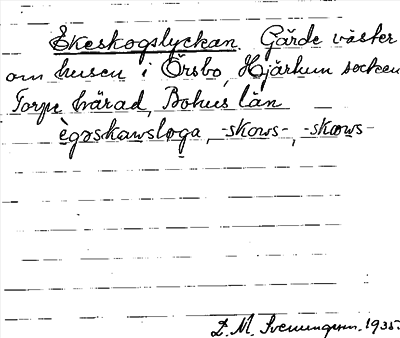 Ekeskogslyckan. Gärde väster
om husen i Örsbo, Hjärtum socken
Torpe härad, Bohus län
ègɔskawsloga, -skows-, -skæws-
D. M. Svenungsson. 1935.